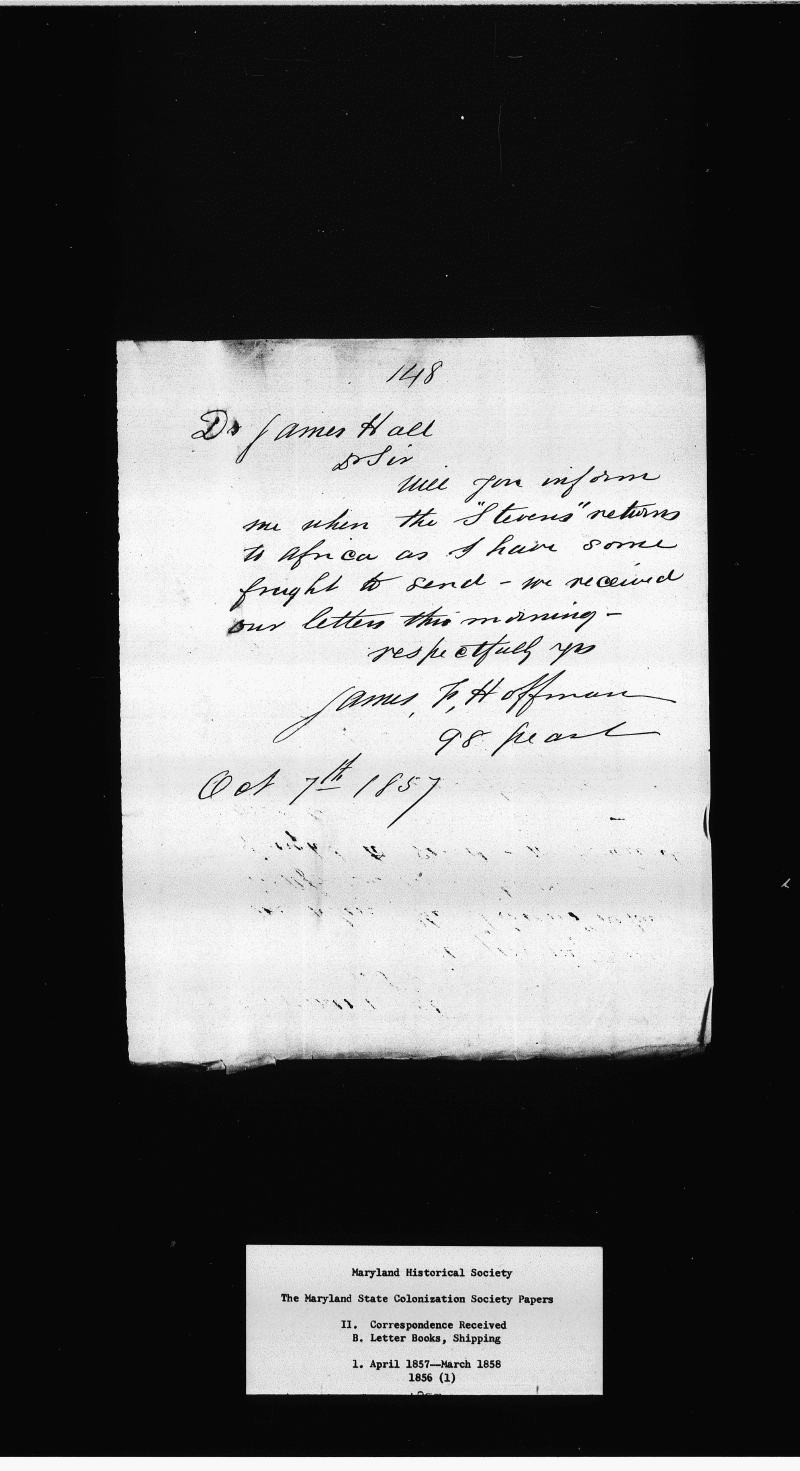 148
Dr James Hall
Dr Sir
Will you inform
me when the "Stevens" returns
to Africa as I have some
fraght to send - we received
our letters this morning -
respectfully yrs
James, F, Hoffman
98 pearl
Oct 7th 1857
Maryland Historical Society
The Maryland State Colonization Society Papers
II. Correspondence Received
B. Letter Books, Shipping
1. April 1857--March 1858
1856 (1)